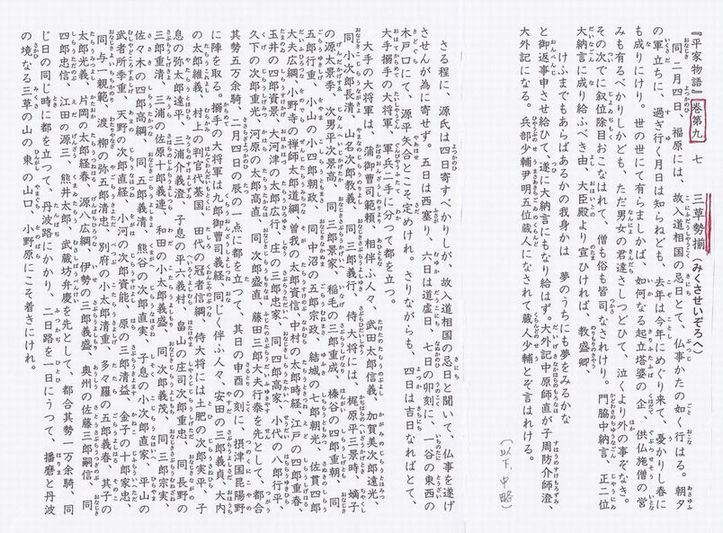 『平家物語』巻第九 七 三草勢揃(みくさせいぞろへ)
同二月四日、福原には、故入道相国の忌日とて、仏事かたの如く行はる。朝夕
の軍立ちに、過ぎ行く月日は知らねども、去年は今年にめぐり来て、憂かりし春に
も成りにけり。世の世にて有らましかば、如何なる起立塔婆の企、供仏施僧の営
みも有るべかりしかども、ただ男女の君達さしつどひて、泣くより外の事ぞなき。
その次でに叙位除目おこなはれて、僧も俗も皆司なされけり。門脇中納言、正二位
大納言に成り給ふべき由、大臣殿より宣ひければ、教盛卿
けふまでもあらばあるかの我身かは 夢のうちにも夢をみるかな
と御返事申させ給ひて、遂に大納言にもなり給はず。大外記中原師直が子周防介師澄、
大外記になる。兵部少輔尹明五位蔵人になされて蔵人少輔とぞ言はれける。
(以下中略)
さる程に、源氏は四日寄すべかりしが、故入道相国の忌日と聞いて、仏事を遂げ
させんが為に寄せず。五日は西塞り、六日は道虚日、七日の卯刻に、一谷の東西の
木戸口にて、源平矢合とこそ定めけれ。さりながらも、四日は吉日なればとて、
大手搦手の大将軍、軍兵二手に分つて都を立つ。
大手の大将軍は、蒲御曹司範頼、相伴ふ人々、武田太郎信義、加賀美次郎遠光、
同小次郎長清、山名次郎教義、同三郎義行、侍大将には、梶原平三景時、嫡子
の源太景季、次男平次景高、同三郎景家、稲毛の三郎重成、榛谷の四郎重朝、同
五郎行重、小山の小四郎朝政、同中沼の五郎宗政、結城の七郎朝光、佐貫四郎
大夫広綱、小野寺の禅師太郎道綱、曽我の太郎資信、中村の太郎時経、江戸の四郎重春、
玉井の四郎資景、大河津の太郎広行、庄の三郎忠家、同四郎高家、小代の八郎行平、
久下の次郎重光、河原の太郎高直、同次郎盛直、藤田三郎大夫行泰を先として、都合
其勢五万余騎、二月四日の辰の一点に都を立つて、其日の申酉の刻に、摂津国昆陽野
に陣を取る。搦手の大将軍は九郎御曹司義経、同じく伴ふ人々、安田の三郎義貞、大内
の太郎維義、村上の判官代基国、田代の冠者信綱、侍大将には土肥の次郎実平、子
息の弥太郎遠平、三浦介義澄、子息の平六義村、畠山の庄司次郎重忠、同長野の
三郎重清、三浦の佐原十郎義連、和田の小太郎義盛、同次郎義茂、同三郎宗実、
佐々木の四郎高綱、同五郎義清、熊谷の次郎直実、子息の小次郎直家、平山の
武者所季重、天野の次郎直経、小河の次郎資能、原の三郎清益、金子の十郎家忠、
同与一親範、渡柳の弥五郎清忠、別府の小太郎清重、多々羅の五郎義春、其子の
太郎光義、片岡の太郎経春、源八広綱、伊勢の三郎義盛、奥州の佐藤三郎嗣信、同
四郎忠信、江田の源三、熊井太郎、武蔵坊弁慶を先として、都合其勢一万余騎、同
じ日の同じ時に都を立つて、丹波路にかかり、二日路を一日にうつて、播磨と丹波
の境なる三草の山の東の山口、小野原にこそ着きにけれ。